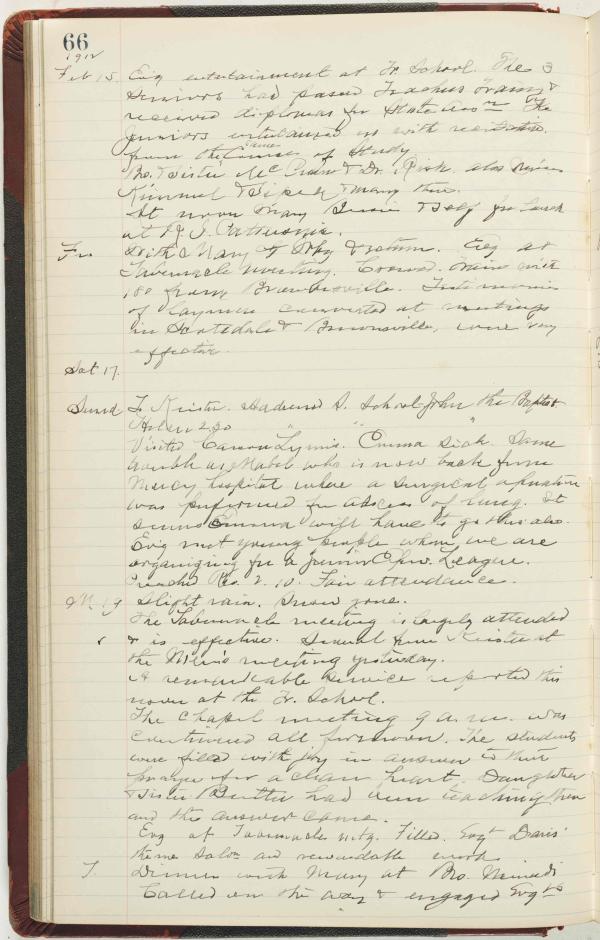 66
1912
Feb 15. Evg entertainment at Tr. School. The 3
Seniors had passed Teachers Traing &
received diplomas for State Assn The
Juniors entertained us with recitation
from the Courses of Study
same
Bro. & Sister Mc & Dr. Rink also
Kimmel & & many others.
At noon Mary & Self for lunch
at J.
Fri With Mary to & return. Evg at
Tabernacle meeting. Crowd. Train with
180 from Brownsville. Testimonies
of laymen converted at meetings
in Scottdale & Brownsville, were very
effective.
Sat 17.
Sund To Keister. Addressed S. School John the Baptist
Helen 2.30
Visited Carson Lynn's. "Emma Sick". Same
trouble as Mabel who is now back from
Mercy hospital where a surgical operation
was performed for abscess of lung. It
seems Emma will have to go thus also.
Evig met young people whom we are
organizing for a Junior Epw. League.
Preachd Rev. 2.10. Fair attendance.
M. 19 Slight rain. Snow gone.
The Tabernacle meeting is largely attended
& is effective. Several from Keister at
the Men's meeting yesterday.
A remarkable service reported this
noon at the Tr. School.
The Chapel meeting 9 a.m. was
continued all forenoon. The students
were filled with joy in answer to their
prayer for a clean heart. Daughter
& Sister Bertha had been teaching them
and the answer came.
Evg at Tabernacle mtg. Filled. Evgt Davis'
theme Salvn and remarkable work.
T. Dinner with Mary at Bro.
Called on the way & engaged Evgts